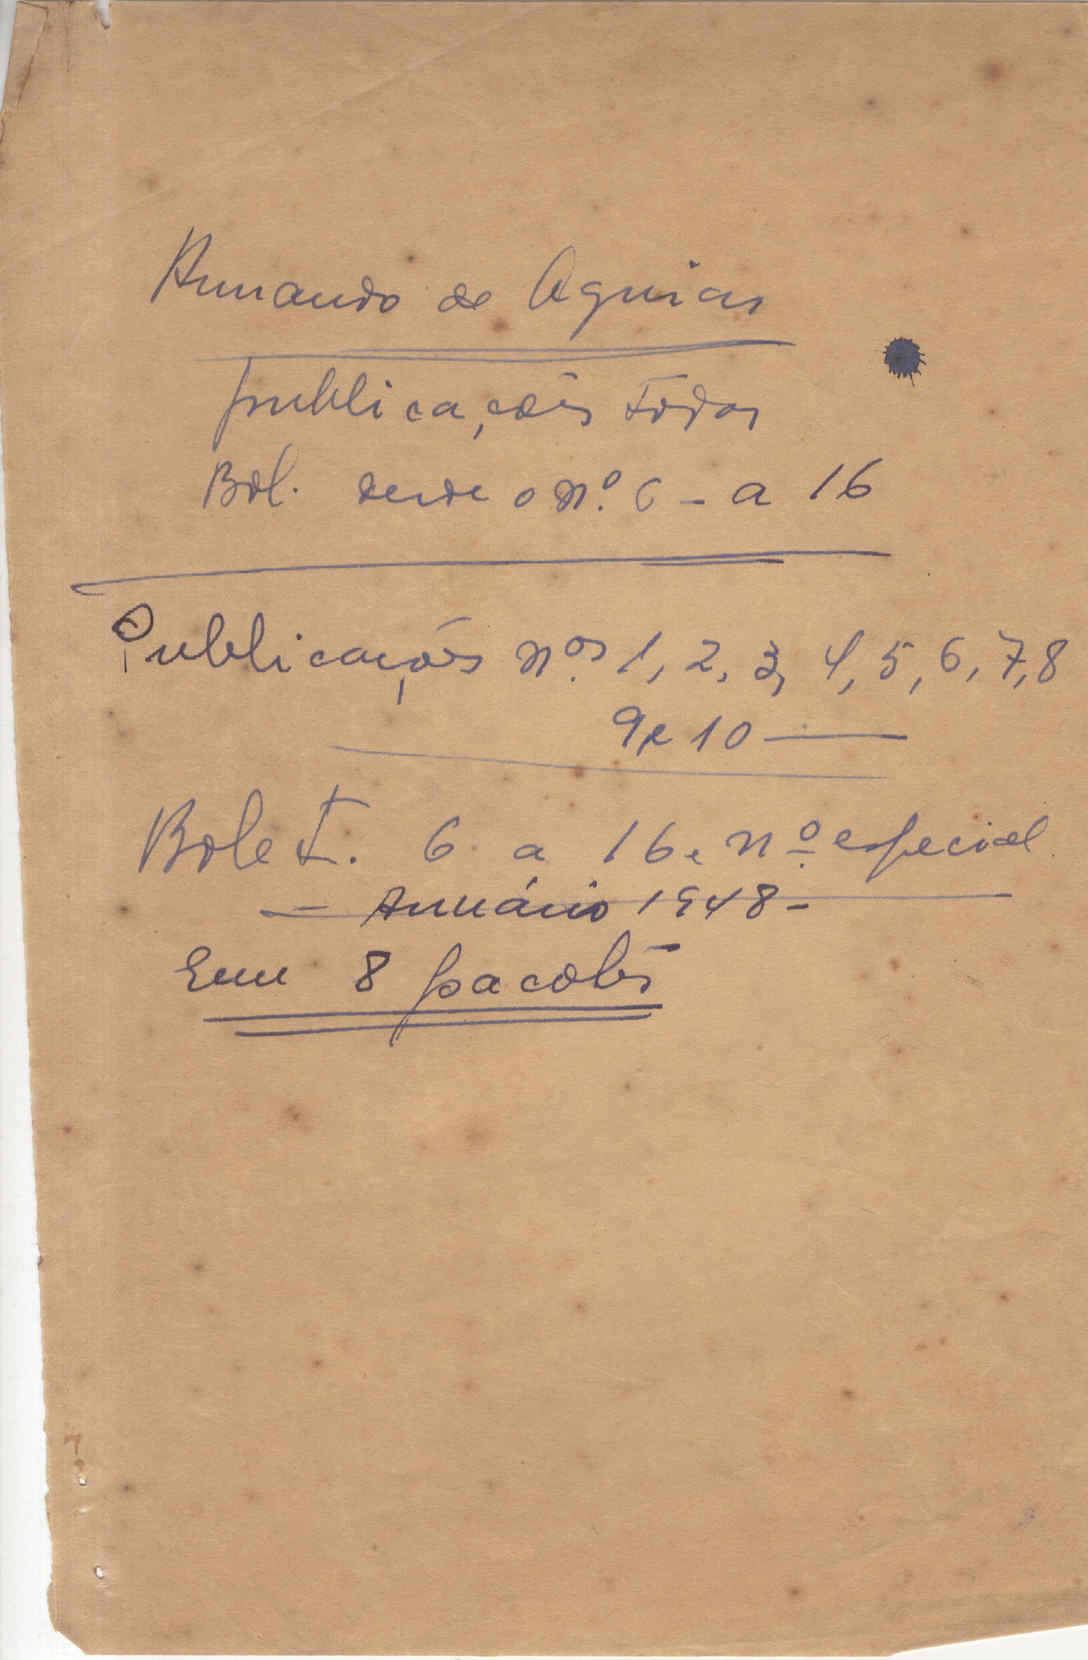 Armando de Aguiar
publicações todas
Bol. desde o nº. 6 - a 16
Publicações nºs 1, 2, 3, 4, 5, 6, 7, 8
9 e 10 —
Bolet. 6 a 16 e nº especial
- Anuário 1948 -
Em 8 pacotes